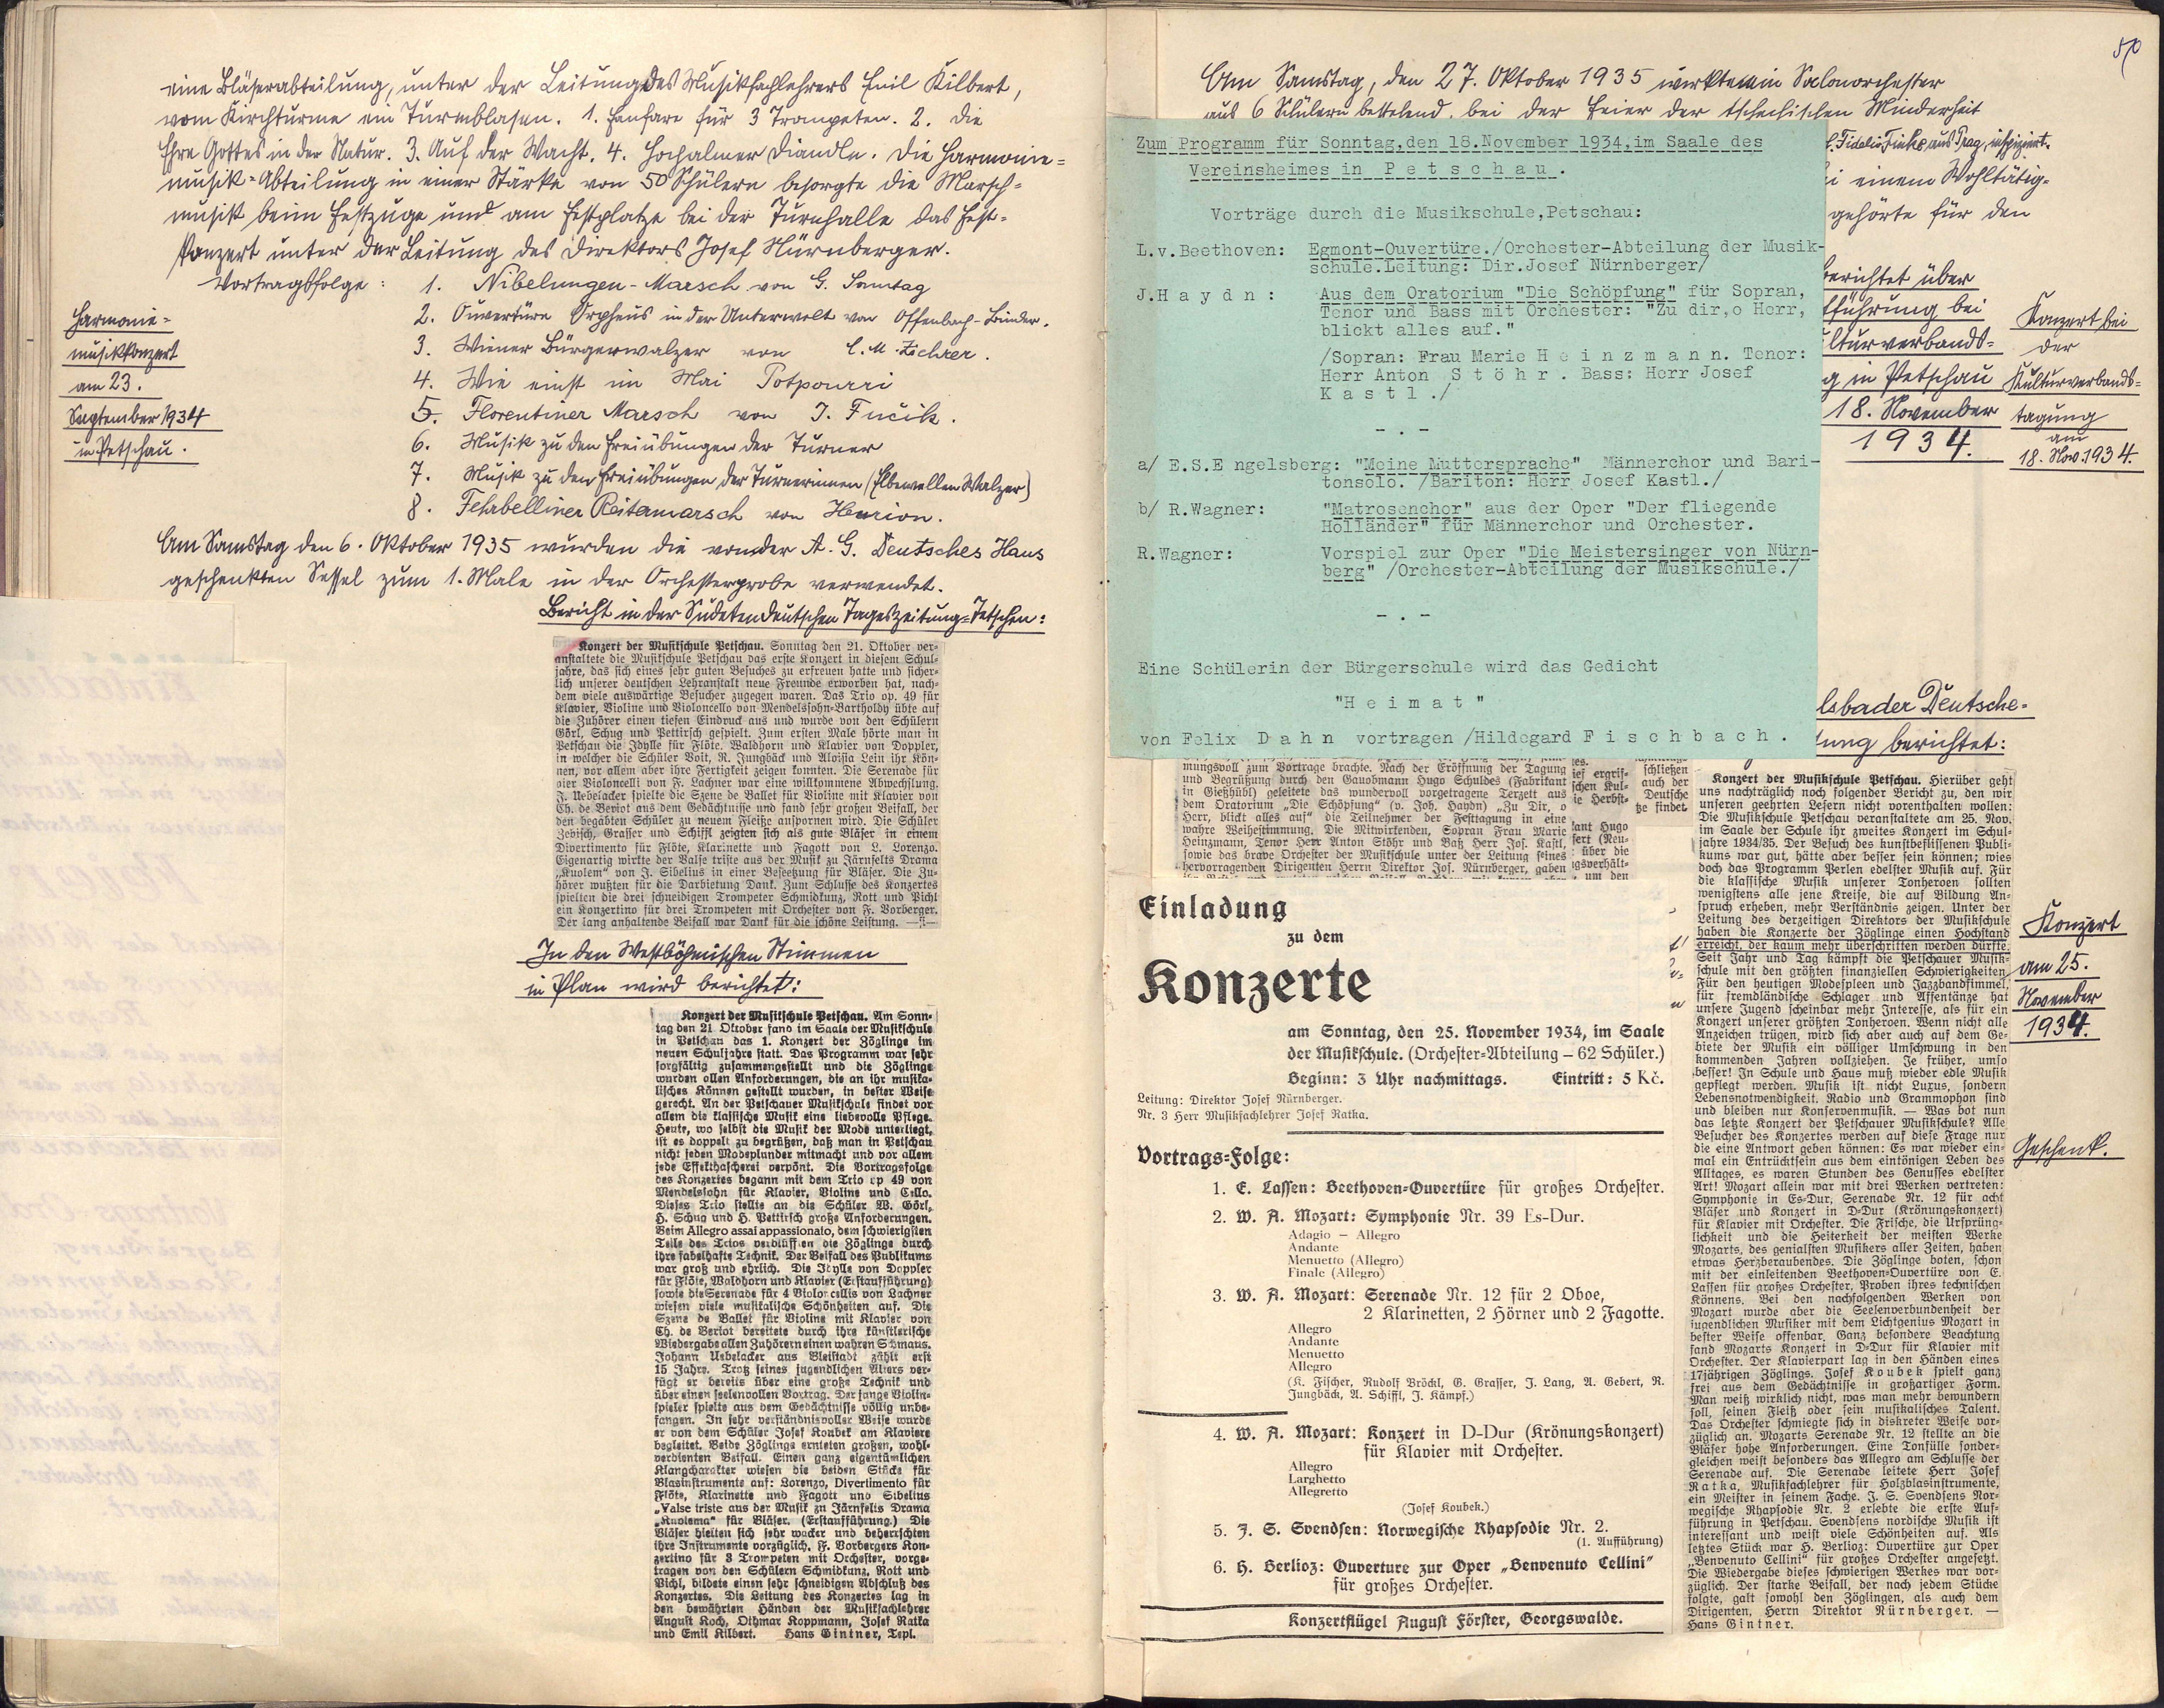 eine Bläserabteilung, unter der Leitung des Musikfachlehrers Emil Kilbert,
vom Kirchturme ein Turmblasen. 1. Fanfare für 3 Trompeten. 2. Die
Ehre Gottes in der Natur. 3. Auf der Wacht. 4. Hochalmer Diandln. Die Harmonie=
musik=Abteilung in einer Stärke von 50 Schülern besorgte die Marsch=
musik beim Festzuge und am Festplatze bei der Turnhalle das Fest=
konzert unter der Leitung des Direktors Josef Nürnberger.
Vortragsfolge: 1. Nibelungen-Marsch von G. Sonntag
2. Ouvertüre Orpheus in der Unterwelt von Offenbach-Binder.
3. Wiener Bürgerwalzer von C. M. Ziehrer.
4. Wie einst im Mai Potpourri
5. Florentiner Marsch von J. Fučik.
6. Musik zu den Freiübungen der Turner
7. Musik zu den Freiübungen der Turnerinnen (Elbewellen Walzer)
8. Fehrbelliner Reitermarsch von Henrion.
Harmonie=
musikkonzert
am 23.
September 1934
in Petschau.
Am Samstag den 6. Oktober 1935 wurden die von der A. G. Deutsches Haus
geschenkten Sessel zum 1. Male in der Orchesterprobe verwendet.
Bericht in der Sudetendeutschen Tageszeitung=Tetschen:
Konzert der Musikschule Petschau. Sonntag den 21. Oktober ver-
anstaltete die Musikschule Petschau das erste Konzert in diesem Schul-
jahre, das sich eines sehr guten Besuches zu erfreuen hatte und sicher-
lich unserer deutschen Lehranstalt neue Freunde erworben hat, nach-
dem viele auswärtige Besucher zugegen waren. Das Trio op. 49 für
Klavier, Violine und Violoncello von Mendelssohn-Bartholdy übte auf
die Zuhörer einen tiefen Eindruck aus und wurde von den Schülern
Görl, Schug und Pettirsch gespielt. Zum ersten Male hörte man in
Petschau die Idylle für Flöte, Waldhorn und Klavier von Doppler,
in welcher die Schüler Voit, R. Jungbäck und Aloisia Lein ihr Kön-
nen, vor allem aber ihre Fertigkeit zeigen konnten. Die Serenade für
vier Violoncelli von F. Lachner war eine willkommene Abwechslung.
J. Uebelacker spielte die Szene de Ballet für Violine mit Klavier von
Ch. de Beriot aus dem Gedächtnisse und fand sehr großen Beifall, der
den begabten Schüler zu neuem Fleiße anspornen wird. Die Schüler
Zebisch, Grasser und Schiffl zeigten sich als gute Bläser in einem
Divertimento für Flöte, Klarinette und Fagott von L. Lorenzo.
Eigenartig wirkte der Valse triste aus der Musik zu Järnfelts Drama
„Kuolem" von J. Sibelius in einer Besetzung für Bläser. Die Zu-
hörer wußten für die Darbietung Dank. Zum Schlusse des Konzertes
spielten die drei schneidigen Trompeter Schmidkunz, Rott und Pichl
ein Konzertino für drei Trompeten mit Orchester von F. Vorberger.
Der lang anhaltende Beifall war Dank für die schöne Leistung.
In den Westböhmischen Stimmen
in Plan wird berichtet:
Konzert der Musikschule Petschau. Am Sonn-
tag den 21 Oktober fand im Saale der Musikschule
in Petschau das 1. Konzert der Zöglinge im
neuen Schuljahre statt. Das Programm war sehr
sorgfältig zusammengestellt und die Zöglinge
wurden allen Anforderungen, die an ihr musika-
lisches Können gestellt wurden, in bester Weise
gerecht. An der Petschauer Musikschule findet vor
allem die klassische Musik eine liebevolle Pflege.
Heute, wo selbst die Musik der Mode unterliegt,
ist es doppelt zu begrüßen, daß man in Petschau
nicht jeden Modeplunder mitmacht und vor allem
jede Effekthascherei verpönt. Die Vortragsfolge
des Konzertes begann mit dem Trio op 49 von
Mendelssohn für Klavier, Violine und Cello.
Dieses Trio stellte an die Schüler W. Görl,
H. Schug und H. Pettirsch große Anforderungen.
Beim Allegro assai appassionato, dem schwierigsten
Teile des Trios verblüfften die Zöglinge durch
ihre fabelhafte Technik. Der Beifall des Publikums
war groß und ehrlich. Die Idylle von Doppler
für Flöte, Waldhorn und Klavier (Erstaufführung)
sowie die Serenade für 4 Violoncellis von Lachner
wiesen viele musikalische Schönheiten auf. Die
Szene de Ballet für Violine mit Klavier von
Ch. de Beriot bereitete durch ihre künstlerische
Wiedergabe allen Zuhörern einen wahren Schmaus.
Johann Uebelacker aus Bleistadt zählt erst
15 Jahre. Trotz seines jugendlichen Alters ver-
fügt er bereits über eine große Technik und
über einen seelenvollen Vortrag. Der junge Violin-
spieler spielte aus dem Gedächtnisse völlig unbe-
fangen. In sehr verständnisvoller Weise wurde
er von dem Schüler Josef Koubek am Klaviere
begleitet. Beide Zöglinge ernteten großen, wohl-
verdienten Beifall. Einen ganz eigentümlichen
Klangcharakter wiesen die beiden Stücke für
Blasinstrumente auf: Lorenzo, Divertimento für
Flöte, Klarinette und Fagott und Sibelius
„Valse triste aus der Musik zu Järnfelts Drama
„Kuolema" für Bläser. (Erstaufführung.) Die
Bläser hielten sich sehr wacker und beherrschten
ihre Instrumente vorzüglich. F. Vorbergers Kon-
zertino für 3 Trompeten mit Orchester, vorge-
tragen von den Schülern Schmidkunz, Rott und
Pichl, bildete einen sehr schneidigen Abschluß des
Konzertes. Die Leitung des Konzertes lag in
den bewährten Händen der Musikfachlehrer
August Koch, Othmar Koppmann, Josef Ratka
und Emil Kilbert. Hans Gintner, Tepl.
50
Am Samstag, den 27. Oktober 1935 wirkte ein Salonorchester
aus 6 Schülern bestehend, bei der Feier der tschechischen Minderheit
Fidelio Finke aus Prag, inspiziert.
i einem Wohltätig=
gehörte für den
berichtet über
fführung bei
lturverbands=
g in Petschau
18. November
1934.
Konzert bei
der
Kulturverbands=
tagung
am
18. Nov. 1934.
Zum Programm für Sonntag,den 18.November 1934,im Saale des
Vereinsheimes in Petschau.
Vorträge durch die Musikschule,Petschau:
L.v.Beethoven: Egmont-Ouvertüre./Orchester-Abteilung der Musik-
schule.Leitung: Dir.Josef Nürnberger/
J.Haydn: Aus dem Oratorium "Die Schöpfung" für Sopran,
Tenor und Bass mit Orchester: "Zu dir,o Herr,
blickt alles auf."
/Sopran: Frau Marie Heinzmann. Tenor:
Herr Anton Stöhr. Bass: Herr Josef
Kastl./
- . -
a/ E.S.Engelsberg: "Meine Muttersprache" Männerchor und Bari-
tonsolo. /Bariton: Herr Josef Kastl./
b/ R.Wagner: "Matrosenchor" aus der Oper "Der fliegende
Holländer" für Männerchor und Orchester.
R.Wagner: Vorspiel zur Oper "Die Meistersinger von Nürn-
berg" /Orchester-Abteilung der Musikschule./
- . -
Eine Schülerin der Bürgerschule wird das Gedicht
"Heimat"
von Felix Dahn vortragen /Hildegard Fischbach.
lsbader Deutsche=
tung berichtet:
mungsvoll zum Vortrage brachte. Nach der Eröffnung der Tagung
und Begrüßung durch den Gauobmann Hugo Schuldes (Fabrikant
in Gießhübl) geleitete das wundervoll vorgetragene Terzett aus
dem Oratorium „Die Schöpfung" (v. Joh. Haydn) „Zu Dir, o
Herr, blickt alles auf" die Teilnehmer der Festtagung in eine
wahre Weihestimmung. Die Mitwirkenden, Sopran Frau Marie
Heinzmann, Tenor Herr Anton Stöhr und Baß Herr Jos. Kastl,
sowie das brave Orchester der Musikschule unter der Leitung seines
hervorragenden Dirigenten Herrn Direktor Jos. Nürnberger, gaben
schließen
auch der
Deutsche
findet
Einladung
zu dem
Konzerte
am Sonntag, den 25. November 1934, im Saale
der Musikschule. (Orchester-Abteilung – 62 Schüler.)
Beginn: 3 Uhr nachmittags. Eintritt: 5 Kč.
Leitung: Direktor Josef Nürnberger.
Nr. 3 Herr Musikfachlehrer Josef Ratka.
Vortrags-Folge:
1. E. Lassen: Beethoven-Ouvertüre für großes Orchester.
2. W. A. Mozart: Symphonie Nr. 39 Es-Dur.
Adagio — Allegro
Andante
Menuetto (Allegro)
Finale (Allegro)
3. W. A. Mozart: Serenade Nr. 12 für 2 Oboe,
2 Klarinetten, 2 Hörner und 2 Fagotte.
Allegro
Andante
Menuetto
Allegro
(K. Fischer, Rudolf Bröckl, G. Grasser, J. Lang, A. Gebert, R.
Jungbäck, A. Schiffl, J. Kämpf.)
4. W. A. Mozart: Konzert in D-Dur (Krönungskonzert)
für Klavier mit Orchester.
Allegro
Larghetto
Allegretto
(Josef Koubek.)
5. J. S. Svendsen: Norwegische Rhapsodie Nr. 2.
(1. Aufführung)
6. H. Berlioz: Ouverture zur Oper „Benvenuto Cellini"
für großes Orchester.
Konzertflügel August Förster, Georgswalde.
Konzert der Musikschule Petschau. Hierüber geht
uns nachträglich noch folgender Bericht zu, den wir
unseren geehrten Lesern nicht vorenthalten wollen:
Die Musikschule Petschau veranstaltete am 25. Nov.
im Saale der Schule ihr zweites Konzert im Schul-
jahre 1934/35. Der Besuch des kunstbeflissenen Publi-
kums war gut, hätte aber besser sein können; wies
doch das Programm Perlen edelster Musik auf. Für
die klassische Musik unserer Tonheroen sollten
wenigstens alle jene Kreise, die auf Bildung An-
spruch erheben, mehr Verständnis zeigen. Unter der
Leitung des derzeitigen Direktors der Musikschule
haben die Konzerte der Zöglinge einen Hochstand
erreicht, der kaum mehr überschritten werden dürfte.
Seit Jahr und Tag kämpft die Petschauer Musik-
schule mit den größten finanziellen Schwierigkeiten.
Für den heutigen Modespleen und Jazzbandfimmel,
für fremdländische Schlager und Affentänze hat
unsere Jugend scheinbar mehr Interesse, als für ein
Konzert unserer größten Tonheroen. Wenn nicht alle
Anzeichen trügen, wird sich aber auch auf dem Ge-
biete der Musik ein völliger Umschwung in den
kommenden Jahren vollziehen. Je früher, umso
besser! In Schule und Haus muß wieder edle Musik
gepflegt werden. Musik ist nicht Luxus, sondern
Lebensnotwendigkeit. Radio und Grammophon sind
und bleiben nur Konservenmusik. — Was bot nun
das letzte Konzert der Petschauer Musikschule? Alle
Besucher des Konzertes werden auf diese Frage nur
die eine Antwort geben können: Es war wieder ein-
mal ein Entrücktsein aus dem eintönigen Leben des
Alltages, es waren Stunden des Genusses edelster
Art! Mozart allein war mit drei Werken vertreten:
Symphonie in Es-Dur, Serenade Nr. 12 für acht
Bläser und Konzert in D-Dur (Krönungskonzert)
für Klavier mit Orchester. Die Frische, die Ursprüng-
lichkeit und die Heiterkeit der meisten Werke
Mozarts, des genialsten Musikers aller Zeiten, haben
etwas Herzberaubendes. Die Zöglinge boten, schon
mit der einleitenden Beethoven-Ouvertüre von E.
Lassen für großes Orchester, Proben ihres technischen
Könnens. Bei den nachfolgenden Werken von
Mozart wurde aber die Seelenverbundenheit der
jugendlichen Musiker mit dem Lichtgenius Mozart in
bester Weise offenbar. Ganz besondere Beachtung
fand Mozarts Konzert in D-Dur für Klavier mit
Orchester. Der Klavierpart lag in den Händen eines
17jährigen Zöglings. Josef Koubek spielt ganz
frei aus dem Gedächtnisse in großartiger Form.
Man weiß wirklich nicht, was man mehr bewundern
soll, seinen Fleiß oder sein musikalisches Talent.
Das Orchester schmiegte sich in diskreter Weise vor-
züglich an. Mozarts Serenade Nr. 12 stellte an die
Bläser hohe Anforderungen. Eine Tonfülle sonder-
gleichen weist besonders das Allegro am Schlusse der
Serenade auf. Die Serenade leitete Herr Josef
Ratka, Musikfachlehrer für Holzblasinstrumente,
ein Meister in seinem Fache. J. S. Svendsens Nor-
wegische Rhapsodie Nr. 2 erlebte die erste Auf-
führung in Petschau. Svendsens nordische Musik ist
interessant und weist viele Schönheiten auf. Als
letztes Stück war H. Berlioz: Ouvertüre zur Oper
„Benvenuto Cellini" für großes Orchester angesetzt.
Die Wiedergabe dieses schwierigen Werkes war vor-
züglich. Der starke Beifall, der nach jedem Stücke
folgte, galt sowohl den Zöglingen, als auch dem
Dirigenten, Herrn Direktor Nürnberger. —
Hans Gintner.
Konzert
am 25.
November
1934.
Geschenk.